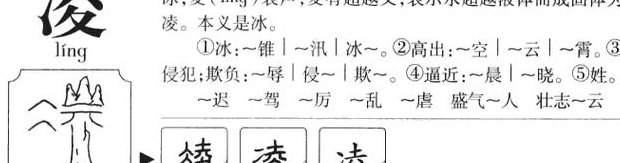 凌
líng
冰,夌(líng)表声,夌有超越义,表示水超越液体而成固体为
凌。本义是冰。
①冰:~锥｜~汛｜冰~。②高出:~空｜~云｜~霄。③
侵犯;欺负:~辱｜侵~｜欺~。④逼近:~晨｜~晓。⑤姓。
~迟 ~驾 ~厉 ~乱 ~虐 盛气~人 壮志~云
凌 凌